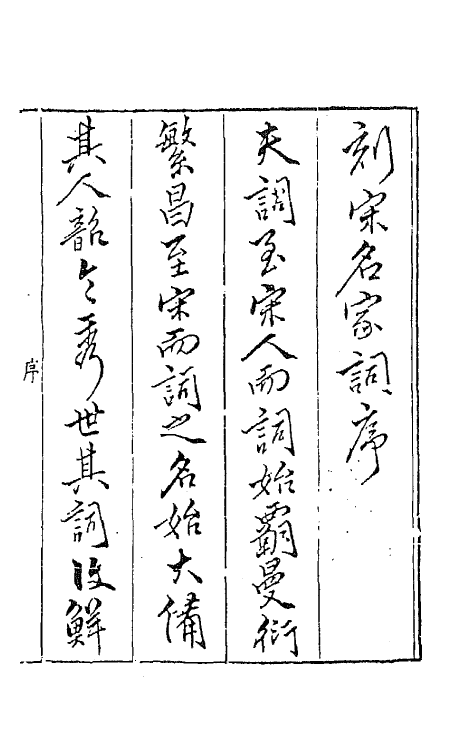 刻宋名家詞序
夫詞至宋人而詞始霸曼衍
繁昌至宋而詞之名始大備
其人韶令秀世其詞復鮮
序